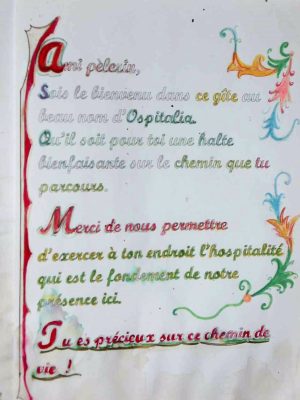 Ami pèlerin,
Sois le bienvenu dans ce gîte au
beau nom d'Ospitalia.
Qu'il soit pour toi une halte
bienfaisante sur le chemin que tu
parcours.
Merci de nous permettre
d'exercer à ton endroit l'hospitalité
qui est le fondement de notre
présence ici.
Tu es précieux sur ce chemin de
vie !